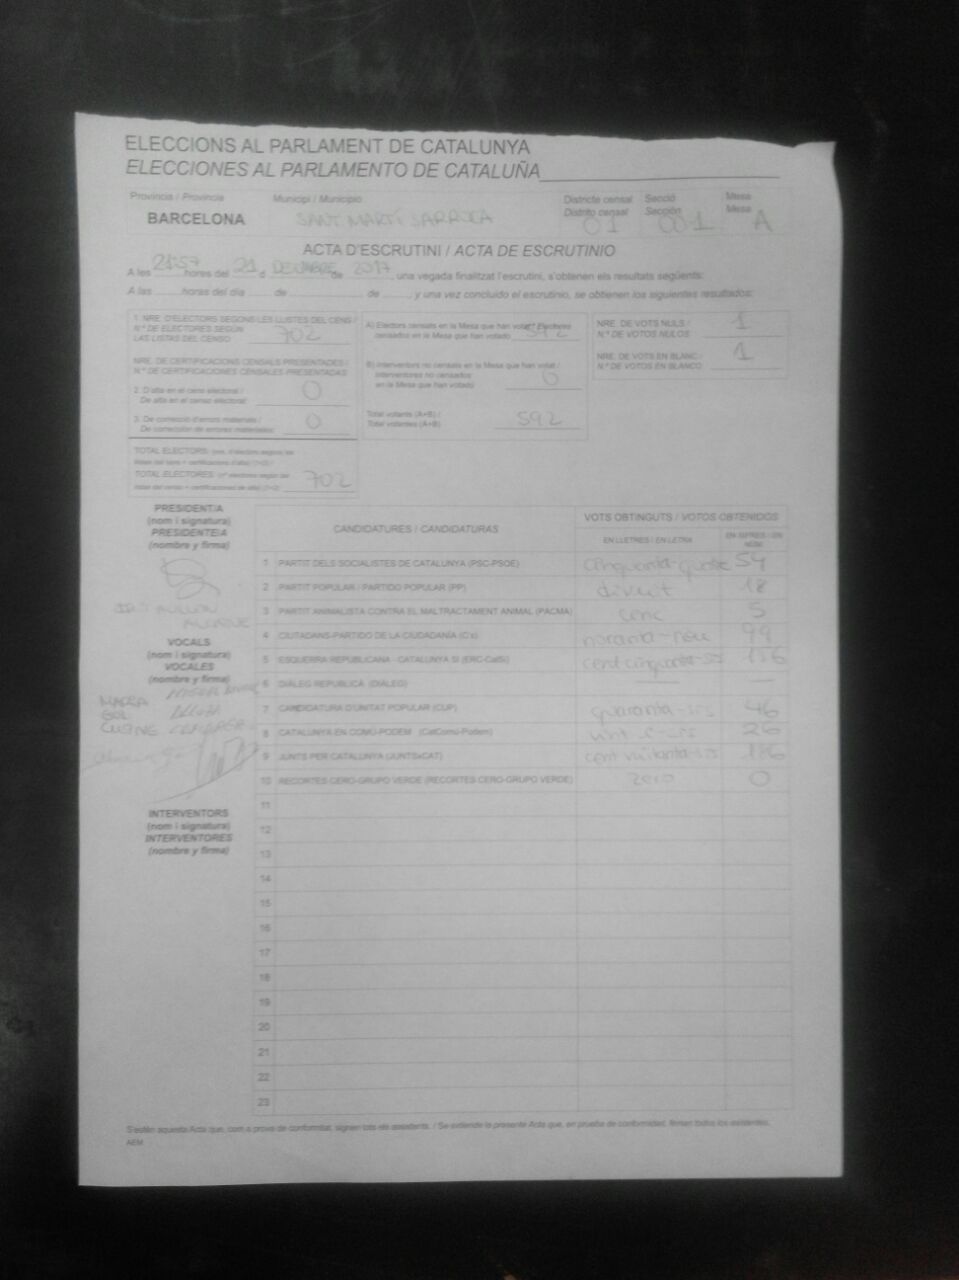 ELECCIONS AL PARLAMENT DE CATALUNYA
ELECCIONES AL PARLAMENTO DE CATALUÑA
Província / Provincia Municipi / Municipio Districte censal Secció Mesa
Distrito censal Sección Mesa
BARCELONA SANT MARTÍ SARROCA 01 001 A
ACTA D'ESCRUTINI / ACTA DE ESCRUTINIO
A les 21:57 hores del 21 d DECEMBRE de 2017, una vegada finalitzat l'escrutini, s'obtenen els resultats següents:
A las ........ horas del día ........ de ........ de ........, y una vez concluido el escrutinio, se obtienen los siguientes resultados:
1. NRE. D'ELECTORS SEGONS LES LLISTES DEL CENS /
N.º DE ELECTORES SEGÚN
LAS LISTAS DEL CENSO 702
NRE. DE CERTIFICACIONS CENSALS PRESENTADES /
N.º DE CERTIFICACIONES CENSALES PRESENTADAS:
2. D'alta en el cens electoral /
De alta en el censo electoral: 0
3. De correcció d'errors materials /
De corrección de errores materiales: 0
TOTAL ELECTORS:
TOTAL ELECTORES: 702
A) Electors censats en la Mesa que han votat / Electores
censados en la Mesa que han votado 592
B) Interventors no censats en la Mesa que han votat /
Interventores no censados
en la Mesa que han votado 0
Total votants (A+B) /
Total votantes (A+B) 592
NRE. DE VOTS NULS /
N.º DE VOTOS NULOS 1
NRE. DE VOTS EN BLANC /
N.º DE VOTOS EN BLANCO 1
PRESIDENT/A
(nom i signatura)
PRESIDENTE/A
(nombre y firma)
VOCALS
(nom i signatura)
VOCALES
(nombre y firma)
MARIA
INTERVENTORS
(nom i signatura)
INTERVENTORES
(nombre y firma)
CANDIDATURES / CANDIDATURAS VOTS OBTINGUTS / VOTOS OBTENIDOS
EN LLETRES / EN LETRA EN XIFRES / EN NÚM.
1 PARTIT DELS SOCIALISTES DE CATALUNYA (PSC-PSOE) cinquanta-quatre 54
2 PARTIT POPULAR / PARTIDO POPULAR (PP) divuit 18
3 PARTIT ANIMALISTA CONTRA EL MALTRACTAMENT ANIMAL (PACMA) cinc 5
4 CIUTADANS-PARTIDO DE LA CIUDADANÍA (C's) noranta-nou 99
5 ESQUERRA REPUBLICANA - CATALUNYA SÍ (ERC-CatSí) cent cinquanta-sis 156
6 DIÀLEG REPUBLICÀ (DIÀLEG) — —
7 CANDIDATURA D'UNITAT POPULAR (CUP) quaranta-sis 46
8 CATALUNYA EN COMÚ-PODEM (CatComú-Podem) vint-i-sis 26
9 JUNTS PER CATALUNYA (JUNTSxCAT) cent vuitanta-sis 186
10 RECORTES CERO-GRUPO VERDE (RECORTES CERO-GRUPO VERDE) zero 0
11
12
13
14
15
16
17
18
19
20
21
22
23
S'estén aquesta Acta que, com a prova de conformitat, signen tots els assistents. / Se extiende la presente Acta que, en prueba de conformidad, firman todos los asistentes.
AEM